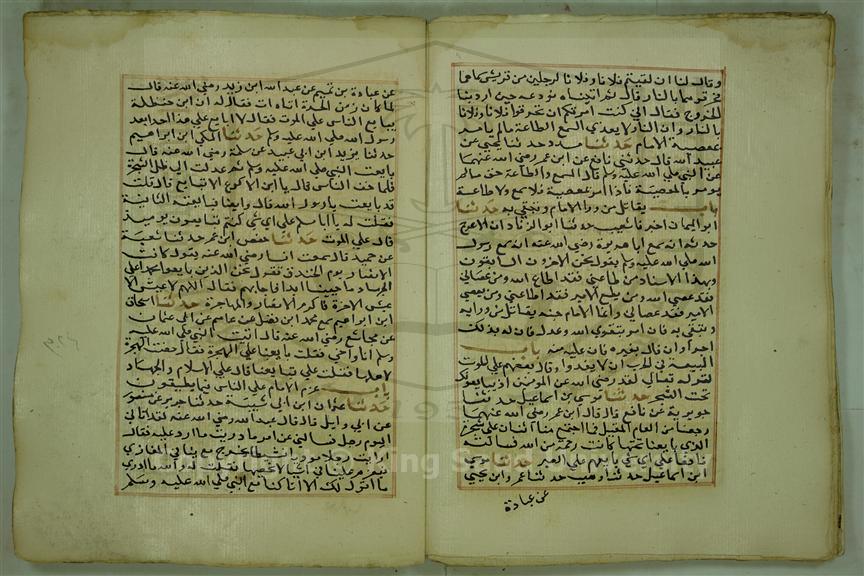 وقال لنا ان لقيتم فلانا وفلانا لرجلين من قريش سماهما
فحرقوهما بالنار قال ثم اتيناه نودعه حين اردنا
الخروج فقال اني كنت امرتكم ان تحرقوا فلانا وفلانا
بالنار وان النار لا يعذب السمع الطاعة مالم يامر
بمعصية الامام حدثنا مسدد حدثنا يحيى عن
عبيد الله قال حدثني نافع عن ابن عمر رضي الله عنهما
عن النبي صلى الله عليه وسلم قال السمع والطاعة حق مالم
يومر بالمعصية فاذا امر بمعصية فلا سمع ولا طاعة
باب يقاتل من وراء الامام ويتقي به حدثنا
ابو اليمان اخبرنا شعيب حدثنا ابو الزناد ان الاعرج
حدثه انه سمع ابا هريرة رضي الله عنه انه سمع رسول
الله صلى الله عليه وسلم يقول نحن الاخرون السابقون
وبهذا الاسناد من اطاعني فقد اطاع الله ومن عصاني
فقد عصى الله ومن يطع الامير فقد اطاعني ومن يعصي
الامير فقد عصاني وانما الامام جنة يقاتل من ورايه
ويتقى به فان امر بتقوى الله وعدل فان له بذلك
اجرا وان قال بغيره فان عليه منه باب
البيعة في الحرب ان لا يفروا وقال بعضهم على الموت
لقوله تعالى لقد رضي الله عن المؤمنين اذ يبايعونك
تحت الشجرة حدثنا موسى بن اسماعيل حدثنا
جويرية عن نافع قال قال ابن عمر رضي الله عنهما
رجعنا من العام المقبل فما اجتمع منا اثنان على الشجرة
التي بايعنا تحتها كانت رحمة من الله فسالت
نافعا على اي شي بايعهم على الموت حدثنا موسى
ابن اسماعيل حدثنا وهيب حدثنا عمرو ابن يحيى
عن عبادة
عن عبادة بن تميم عن عبد الله ابن زيد رضي الله عنه قال
لما كان زمن الحرة اتاه ات فقال له ان ابن حنظلة
يبايع الناس على الموت فقال لا ابايع على هذا احدا بعد
رسول الله صلى الله عليه وسلم حدثنا المكي ابن ابراهيم
حدثنا يزيد ابن ابي عبيد عن سلمة رضي الله عنه قال
بايعت النبي صلى الله عليه وسلم ثم عدلت الى ظل الشجرة
فلما خف الناس قال يا ابن الاكوع الا تبايع قال قلت
قد بايعت يا رسول الله قال وايضا فبايعته الثانية
فقلت له يا ابا مسلم على اي شي كنتم تبايعون يوميذ
قال على الموت حدثنا حفص ابن عمر حدثنا شعبة
عن حميد قال سمعت انسا رضي الله عنه يقول كانت
الانصار يوم الخندق تقول نحن الذين بايعوا محمدا على
الجهاد ما حيينا ابدا فاجابهم فقال اللهم لا عيش الا
عيش الاخرة فاكرم الانصار والمهاجرة حدثنا اسحاق
ابن ابراهيم سمع محمد ابن فضيل عن عاصم عن ابي عثمان
عن مجاشع رضي الله عنه قال اتيت النبي صلى الله عليه
وسلم انا واخي فقلت بايعنا على الهجرة فقال مضت الهجرة
لاهلها فقلت على ما تبايعنا قال على الاسلام والجهاد
باب عزم الامام على الناس فيما يطيقون
حدثنا عثمان ابن ابي شيبة حدثنا جرير عن منصور
عن ابي وايل قال قال عبد الله رضي الله عنه لقد اتاني
اليوم رجل فسالني عن امر ما دريت ما ارد عليه فقال
ارايت رجلا موديا نشيطا يخرج مع امراينا في المغازي
فيعزم علينا في اشيا لا نحصيها فقلت له والله ما ادري
ما اقول لك الا انا كنا مع النبي صلى الله عليه وسلم